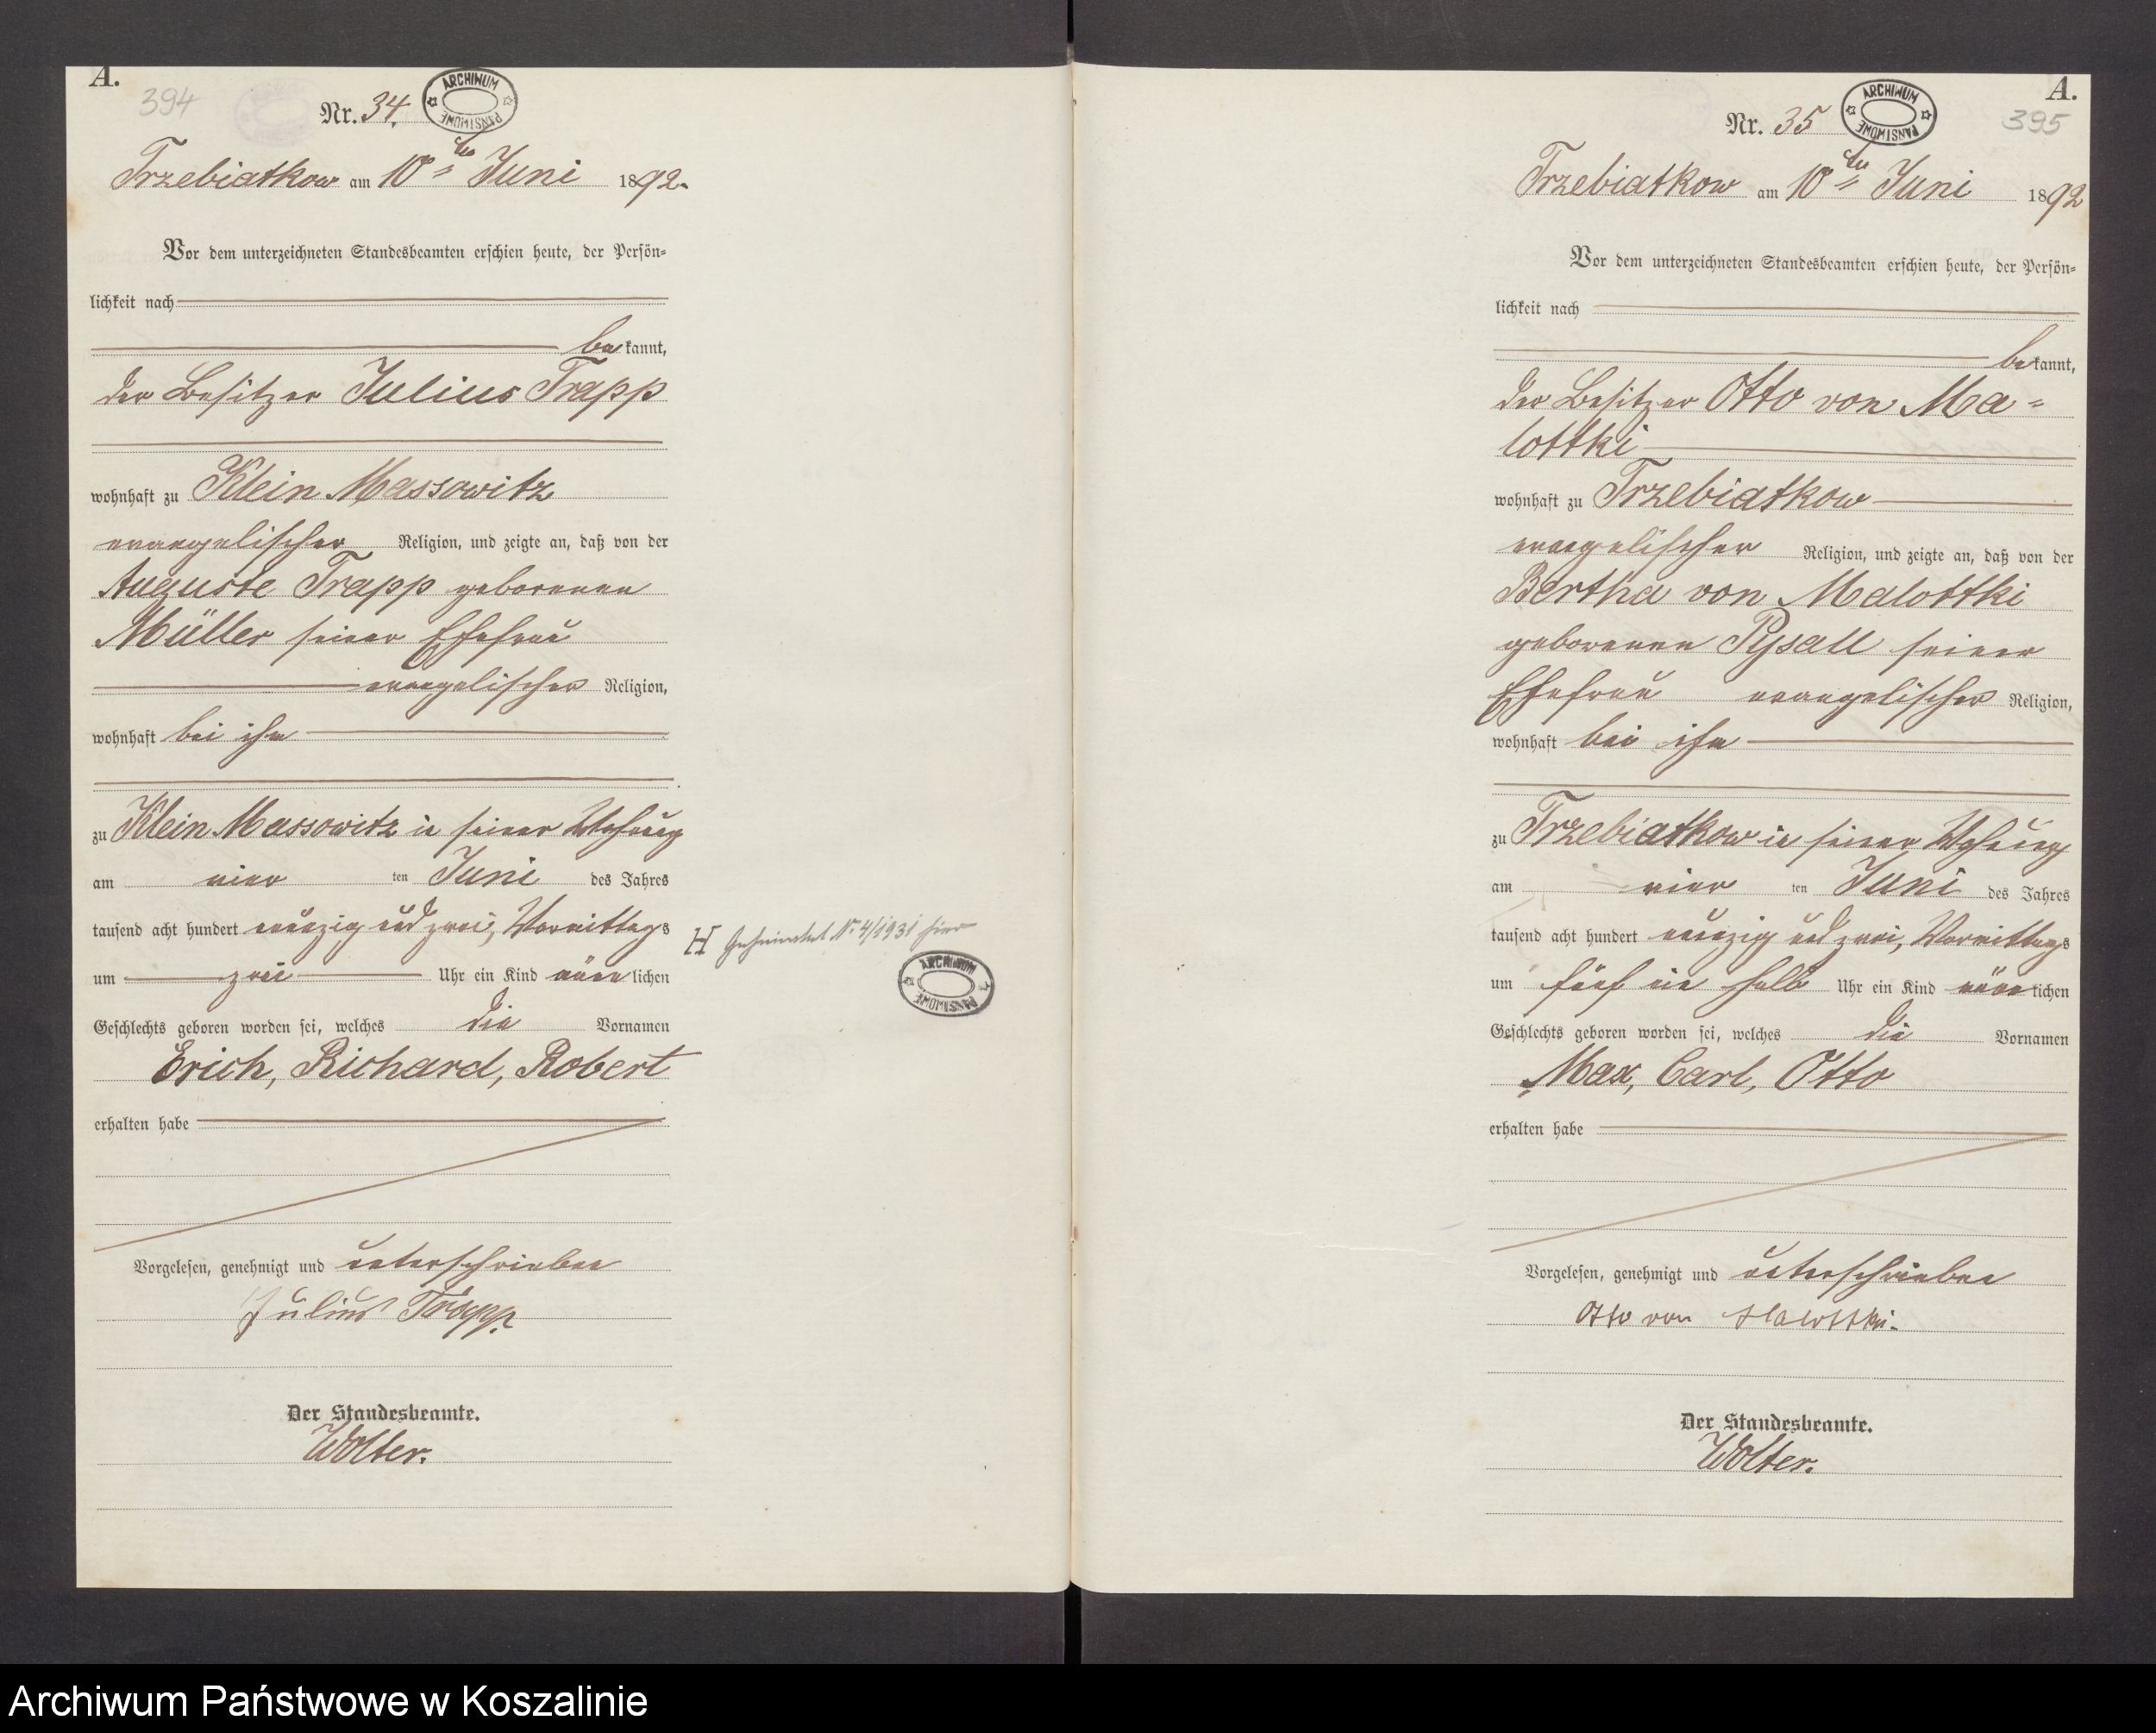 A.
394
Nr. 34.
ARCHIWUM PAŃSTWOWE
Trzebiatkow am 10ten Juni 1892.
Vor dem unterzeichneten Standesbeamten erschien heute, der Persön-
lichkeit nach
bekannt,
der Besitzer Julius Trapp
wohnhaft zu Klein Massowitz
evangelischer Religion, und zeigte an, daß von der
Auguste Trapp geborenen
Müller seiner Ehefrau
evangelischer Religion,
wohnhaft bei ihm
zu Klein Massowitz in seiner Wohnung
am vier ten Juni des Jahres
tausend acht hundert neunzig und zwei, Vormittags
um zwei Uhr ein Kind männlichen
Geschlechts geboren worden sei, welches die Vornamen
Erich, Richard, Robert
erhalten habe
Vorgelesen, genehmigt und unterschrieben
Julius Trapp.
Der Standesbeamte.
Wolter.
H Geheiratet Nr 4/1931 hier
ARCHIWUM PAŃSTWOWE
A.
395
Nr. 35
ARCHIWUM PAŃSTWOWE
Trzebiatkow am 10ten Juni 1892
Vor dem unterzeichneten Standesbeamten erschien heute, der Persön-
lichkeit nach
bekannt,
der Besitzer Otto von Ma-
lottki
wohnhaft zu Trzebiatkow
evangelischer Religion, und zeigte an, daß von der
Bertha von Malottki
geborenen Pysall seiner
Ehefrau evangelischer Religion,
wohnhaft bei ihm
zu Trzebiatkow in seiner Wohnung
am vier ten Juni des Jahres
tausend acht hundert neunzig und zwei, Vormittags
um fünf ein halb Uhr ein Kind männlichen
Geschlechts geboren worden sei, welches die Vornamen
Max, Carl, Otto
erhalten habe
Vorgelesen, genehmigt und unterschrieben
Otto von Malottki.
Der Standesbeamte.
Wolter.
Archiwum Państwowe w Koszalinie